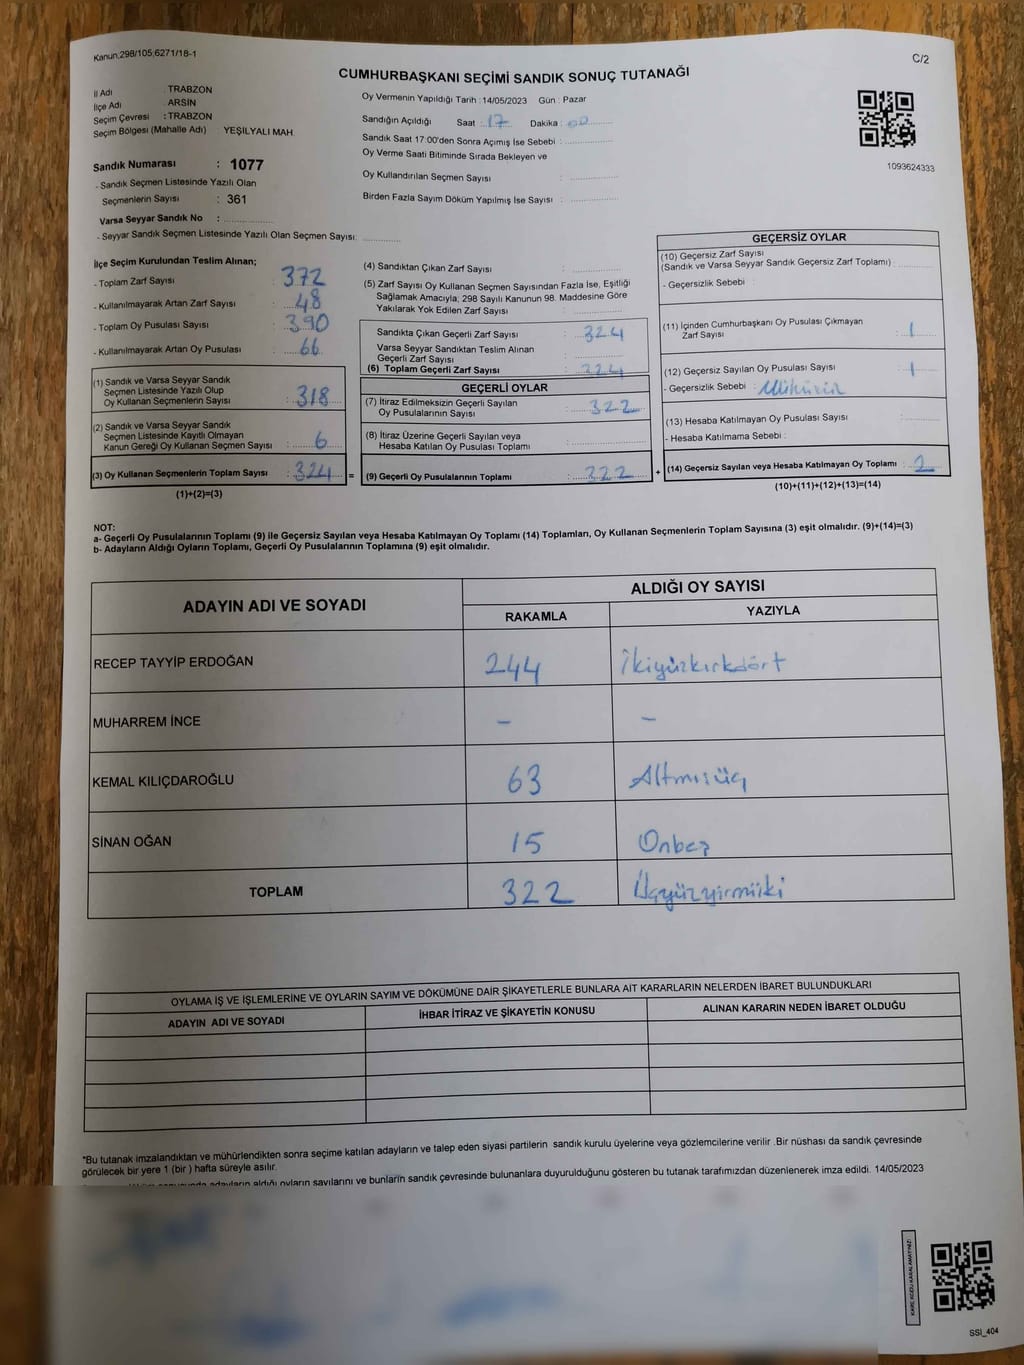 Kanun;298/105;6271/18-1
C/2
CUMHURBAŞKANI SEÇİMİ SANDIK SONUÇ TUTANAĞI
İl Adı : TRABZON
İlçe Adı : ARSİN
Seçim Çevresi : TRABZON
Seçim Bölgesi (Mahalle Adı) : YEŞİLYALI MAH.
Sandık Numarası : 1077
- Sandık Seçmen Listesinde Yazılı Olan
Seçmenlerin Sayısı : 361
Varsa Seyyar Sandık No :
- Seyyar Sandık Seçmen Listesinde Yazılı Olan Seçmen Sayısı:
Oy Vermenin Yapıldığı Tarih : 14/05/2023 Gün : Pazar
Sandığın Açıldığı Saat : 17 Dakika : 00
Sandık Saat 17:00'den Sonra Açımış İse Sebebi :
Oy Verme Saati Bitiminde Sırada Bekleyen ve
Oy Kullandırılan Seçmen Sayısı :
Birden Fazla Sayım Döküm Yapılmış İse Sayısı :
1093624333
İlçe Seçim Kurulundan Teslim Alınan;
- Toplam Zarf Sayısı : 372
- Kullanılmayarak Artan Zarf Sayısı : 48
- Toplam Oy Pusulası Sayısı : 390
- Kullanılmayarak Artan Oy Pusulası : 66
(1) Sandık ve Varsa Seyyar Sandık
Seçmen Listesinde Yazılı Olup
Oy Kullanan Seçmenlerin Sayısı : 318
(2) Sandık ve Varsa Seyyar Sandık
Seçmen Listesinde Kayıtlı Olmayan
Kanun Gereği Oy Kullanan Seçmen Sayısı : 6
(3) Oy Kullanan Seçmenlerin Toplam Sayısı : 324 =
(1)+(2)=(3)
(4) Sandıktan Çıkan Zarf Sayısı :
(5) Zarf Sayısı Oy Kullanan Seçmen Sayısından Fazla İse, Eşitliği
Sağlamak Amacıyla; 298 Sayılı Kanunun 98. Maddesine Göre
Yakılarak Yok Edilen Zarf Sayısı :
Sandıkta Çıkan Geçerli Zarf Sayısı : 324
Varsa Seyyar Sandıktan Teslim Alınan
Geçerli Zarf Sayısı :
(6) Toplam Geçerli Zarf Sayısı : 324
GEÇERLİ OYLAR
(7) İtiraz Edilmeksizin Geçerli Sayılan
Oy Pusulalarının Sayısı : 322
(8) İtiraz Üzerine Geçerli Sayılan veya
Hesaba Katılan Oy Pusulası Toplamı :
(9) Geçerli Oy Pusulalarının Toplamı : 322 +
GEÇERSİZ OYLAR
(10) Geçersiz Zarf Sayısı
(Sandık ve Varsa Seyyar Sandık Geçersiz Zarf Toplamı) :
- Geçersizlik Sebebi :
(11) İçinden Cumhurbaşkanı Oy Pusulası Çıkmayan
Zarf Sayısı : 1
(12) Geçersiz Sayılan Oy Pusulası Sayısı : 1
- Geçersizlik Sebebi :
(13) Hesaba Katılmayan Oy Pusulası Sayısı :
- Hesaba Katılmama Sebebi :
(14) Geçersiz Sayılan veya Hesaba Katılmayan Oy Toplamı : 2
(10)+(11)+(12)+(13)=(14)
NOT:
a- Geçerli Oy Pusulalarının Toplamı (9) ile Geçersiz Sayılan veya Hesaba Katılmayan Oy Toplamı (14) Toplamları, Oy Kullanan Seçmenlerin Toplam Sayısına (3) eşit olmalıdır. (9)+(14)=(3)
b- Adayların Aldığı Oyların Toplamı, Geçerli Oy Pusulalarının Toplamına (9) eşit olmalıdır.
ADAYIN ADI VE SOYADI ALDIĞI OY SAYISI
RAKAMLA YAZIYLA
RECEP TAYYİP ERDOĞAN 244 İkiyüzkırkdört
MUHARREM İNCE - -
KEMAL KILIÇDAROĞLU 63 Altmışüç
SİNAN OĞAN 15 Onbeş
TOPLAM 322 Üçyüzyirmiiki
OYLAMA İŞ VE İŞLEMLERİNE VE OYLARIN SAYIM VE DÖKÜMÜNE DAİR ŞİKAYETLERLE BUNLARA AİT KARARLARIN NELERDEN İBARET BULUNDUKLARI
ADAYIN ADI VE SOYADI İHBAR İTİRAZ VE ŞİKAYETİN KONUSU ALINAN KARARIN NEDEN İBARET OLDUĞU
*Bu tutanak imzalandıktan ve mühürlendikten sonra seçime katılan adayların ve talep eden siyasi partilerin sandık kurulu üyelerine veya gözlemcilerine verilir .Bir nüshası da sandık çevresinde
görülecek bir yere 1 (bir ) hafta süreyle asılır.
adayların aldığı oyların sayılarını ve bunların sandık çevresinde bulunanlara duyurulduğunu gösteren bu tutanak tarafımızdan düzenlenerek imza edildi. 14/05/2023
KARE KODU KARALAMAYINIZ!
SSI_404